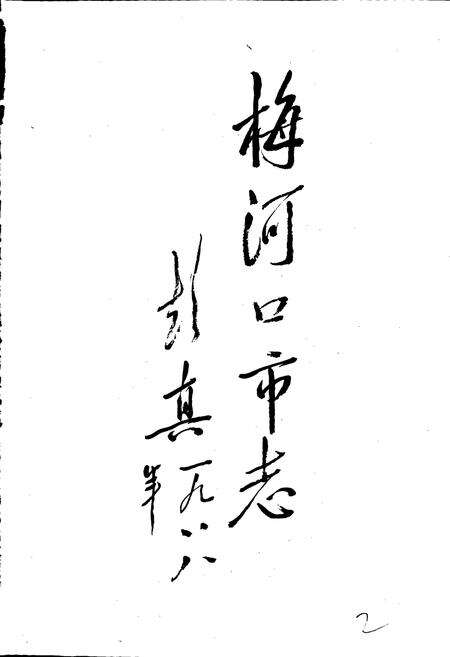 梅河口市志
彭真
一九八八
年
2